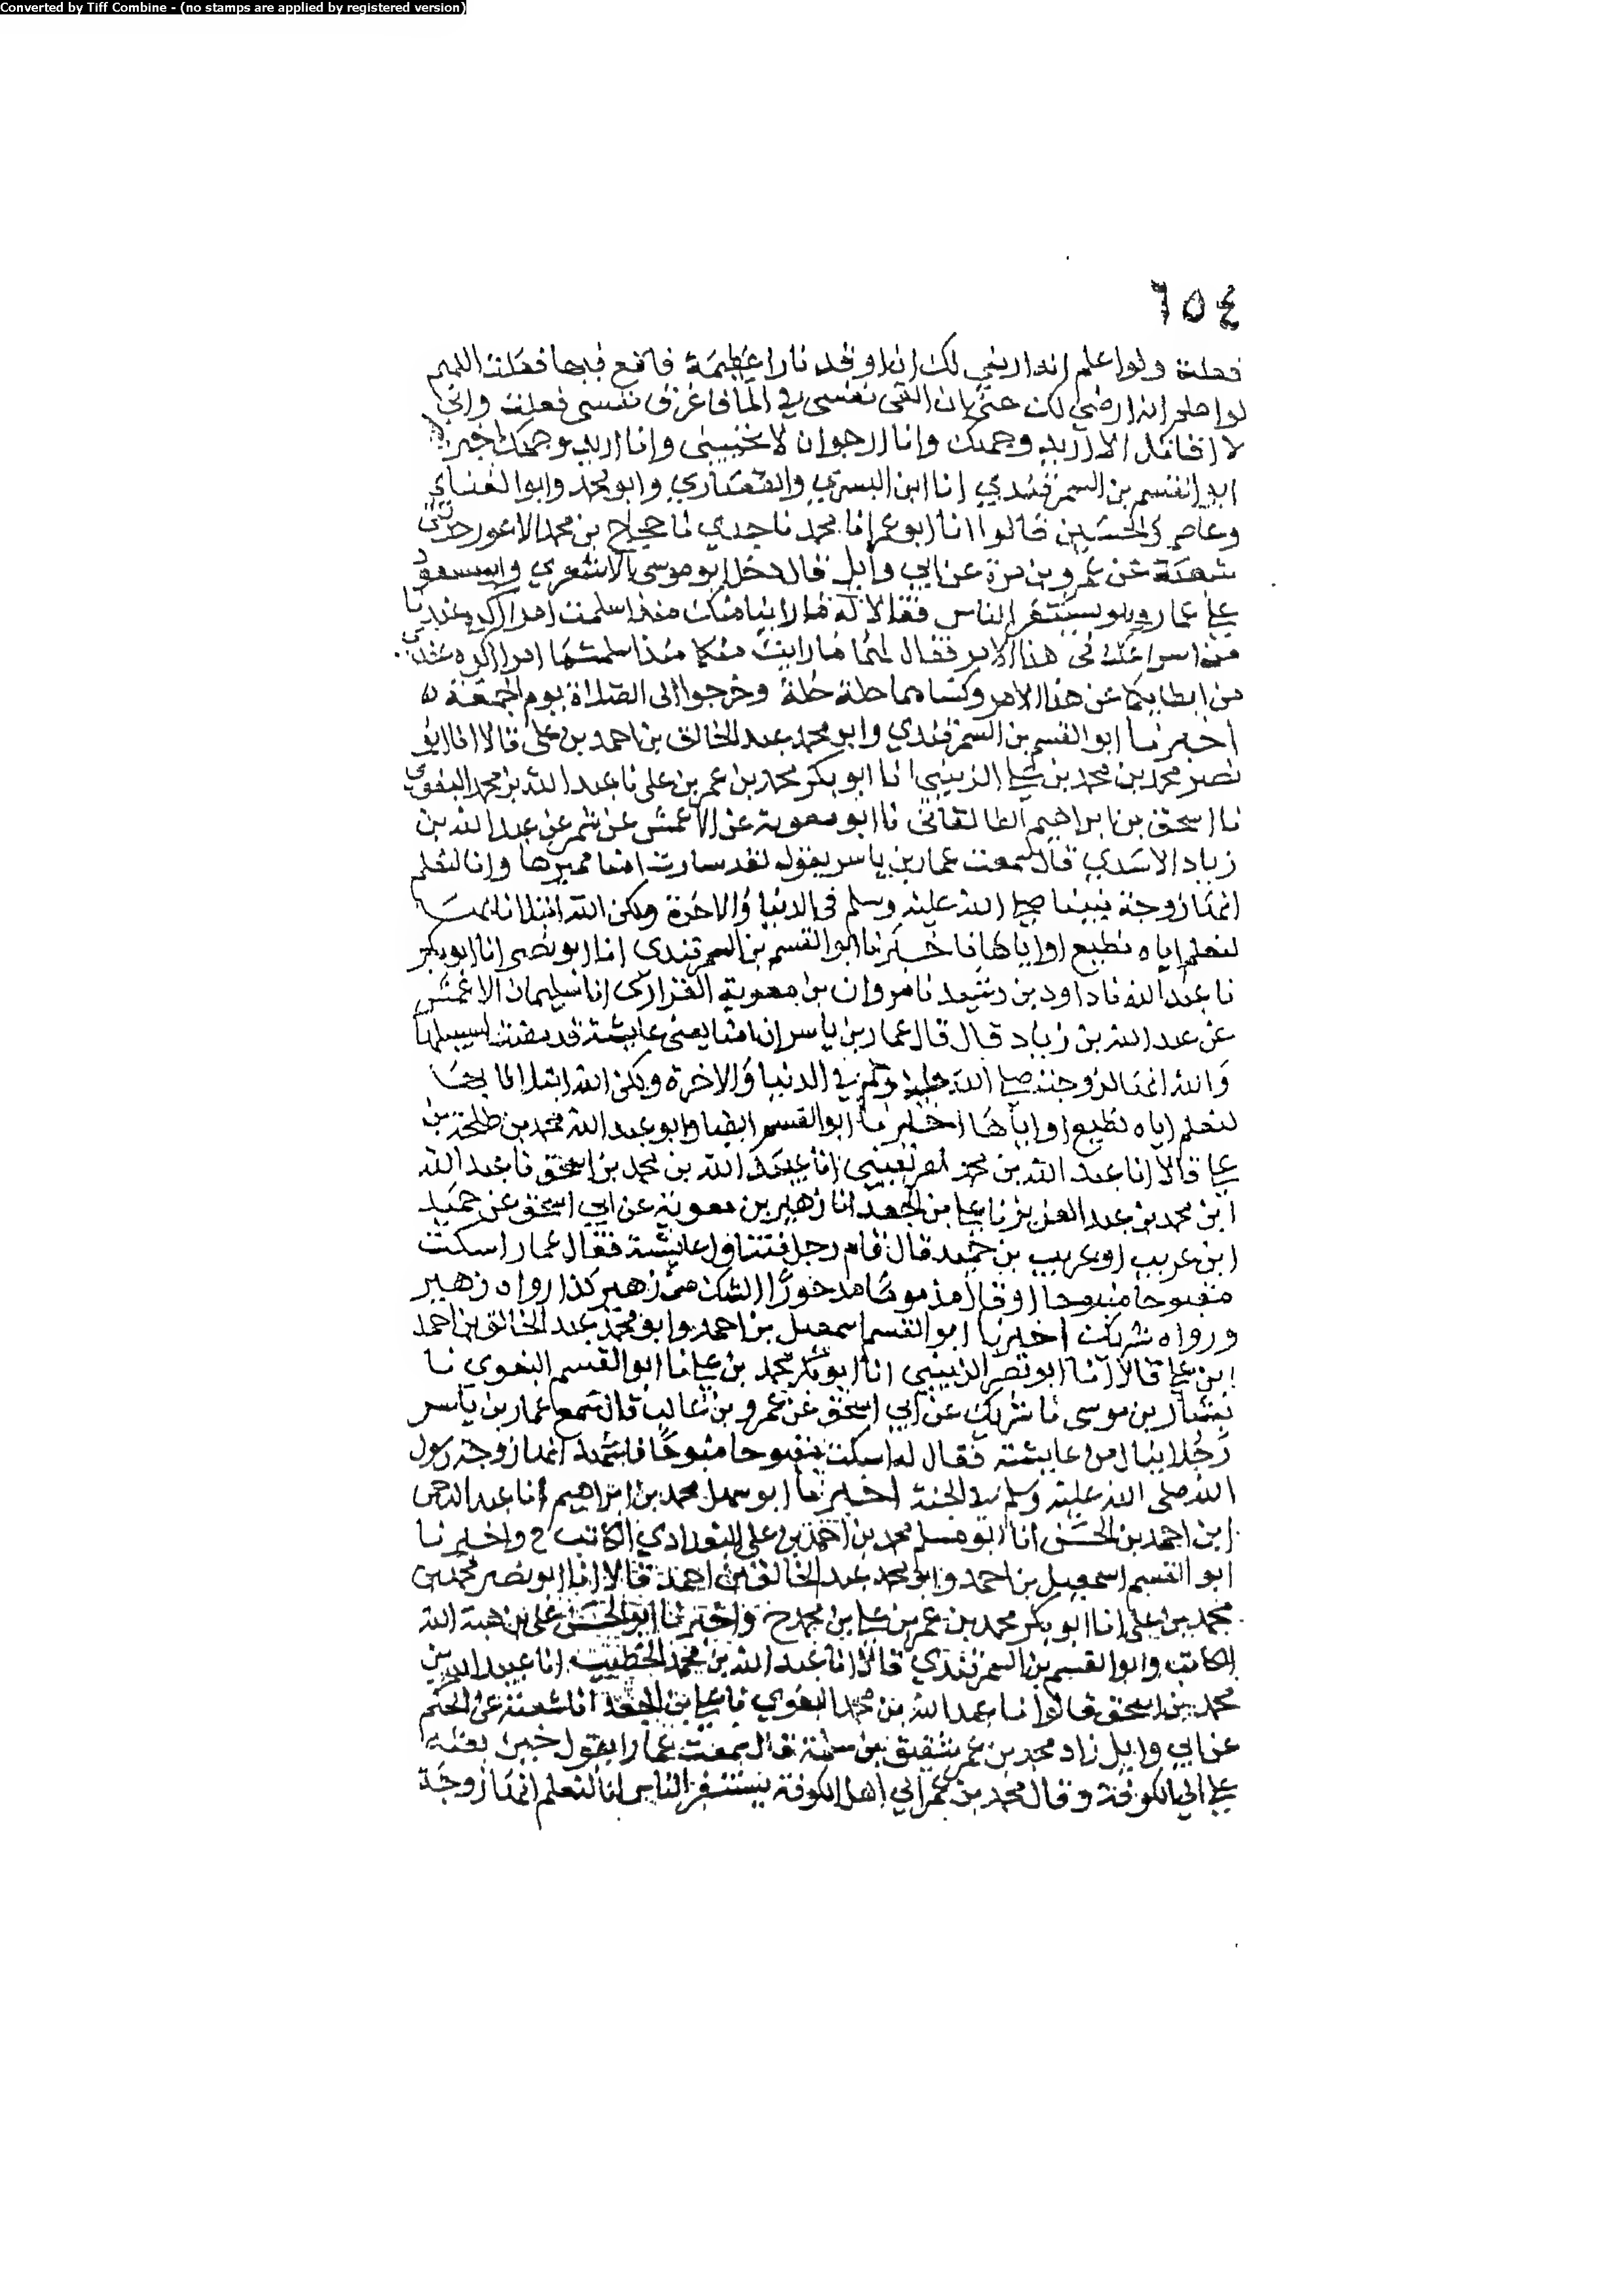 Converted by Tiff Combine - (no stamps are applied by registered version)
٦٥٤
فعلت ولو اعلم انه ارضى لك ان اوقد نارا عظيمة فاقع فيها فعلت اللهم
لو اعلم انه ارضى لك عني ان القى نفسي في الما فاغرق نفسي فعلت واني
لا اقاتل الا اريد وجهك وانا ارجو ان لا تخيبني وانا اريد وجهك اخبرنا
ابو القسم بن السمرقندي انا ابن البسري والقصاري وابو محمد وابو الغنايم
وعاصم بن الحسين قالوا انا ابو عمر انا محمد نا جدي نا حجاج بن محمد الاعور حدثني
شعبة عن عمرو بن مرة عن ابي وايل قال دخل ابو موسى الاشعري وابو مسعود
علي عمار وهو يستنفر الناس فقالا له ما راينا منك منذ اسلمت امرا اكره عندنا
من اسراعك في هذا الامر فقال لهما ما رايت منكما منذ اسلمتما امرا اكره عندي
من ابطايكما عن هذا الامر وكساهما حلة حلة وخرجوا الى الصلاة يوم الجمعة ه
اخبرنا ابو القسم بن السمرقندي وابو محمد عبد الخالق بن احمد بن علي قالا انا ابو
نصر محمد بن محمد بن علي الزينبي انا ابو بكر محمد بن عمر بن علي نا عبد الله بن محمد البغوي
نا اسحق بن ابراهيم الطالقاني نا ابو معوية عن الاعمش عن شمر عن عبد الله بن
زياد الاسدي قال سمعت عمار بن ياسر يقول لقد سارت امنا مسيرها وانا لنعلم
انها زوجة نبينا صلى الله عليه وسلم في الدنيا والاخرة ولكن الله ابتلانا بها
لنعلم اياه نطيع او اياها اخبرنا ابو القسم بن السمرقندي انا ابو نصر انا ابو بكر
نا عبد الله نا داود بن رشيد نا مروان بن معوية الفزاري انا سليمان الاعمش
عن عبد الله بن زياد قال قال عمار بن ياسر ان امنا يعني عايشة قد مضت لسبيلها
والله انها لزوجته صلى الله عليه وسلم في الدنيا والاخرة ولكن الله ابتلانا بها
لنعلم اياه نطيع او اياها اخبرنا ابو القسم ايضا وابو عبد الله محمد بن طلحة بن
علي قالا انا عبد الله بن محمد الصريفيني انا عبيد الله بن محمد بن اسحق نا عبد الله
ابن محمد بن عبد العزيز نا علي بن الجعد انا زهير بن معوية عن ابي اسحق عن حميد
ابن عريب او عريب بن حميد قال قام رجل فتناول عايشة فقال عمار اسكت
مقبوحا منبوحا او قال مذموما مدحورا الشك من زهير كذا رواه زهير
ورواه شريك اخبرنا ابو القسم اسمعيل بن احمد وابو محمد عبد الخالق بن احمد
ابن علي قالا انا ابو نصر الزينبي انا ابو بكر محمد بن علي نا ابو القسم البغوي نا
بشار بن موسى نا شريك عن ابي اسحق عن عمرو بن غالب قال سمع عمار بن ياسر
رجلا ينال من عايشة فقال له اسكت مقبوحا منبوحا فاشهد انها زوجة رسول
الله صلى الله عليه وسلم في الجنة اخبرنا ابو سهل محمد بن ابراهيم انا عبد الرحمن
ابن احمد بن الحسن انا ابو مسلم محمد بن احمد بن علي البغدادي الكاتب ح واخبرنا
ابو القسم اسمعيل بن احمد وابو محمد عبد الخالق بن احمد قالا انا ابو نصر محمد بن
محمد بن علي انا ابو بكر محمد بن عمر بن علي بن محمد ح واخبرنا ابو الحسن علي بن هبة الله
الكاتب وابو القسم بن السمرقندي قالا انا عبد الله بن محمد الخطيب انا عبيد الله بن
محمد بن اسحق قالوا نا عبد الله بن محمد البغوي نا علي بن الجعد انا شعبة عن الحكم
عن ابي وايل زاد محمد بن عمر شقيق بن سلمة قال سمعت عمارا يقول حين بعثه
علي الى الكوفة وقال محمد بن عمر الي اهل الكوفة يستنفر الناس انا لنعلم انها زوجة